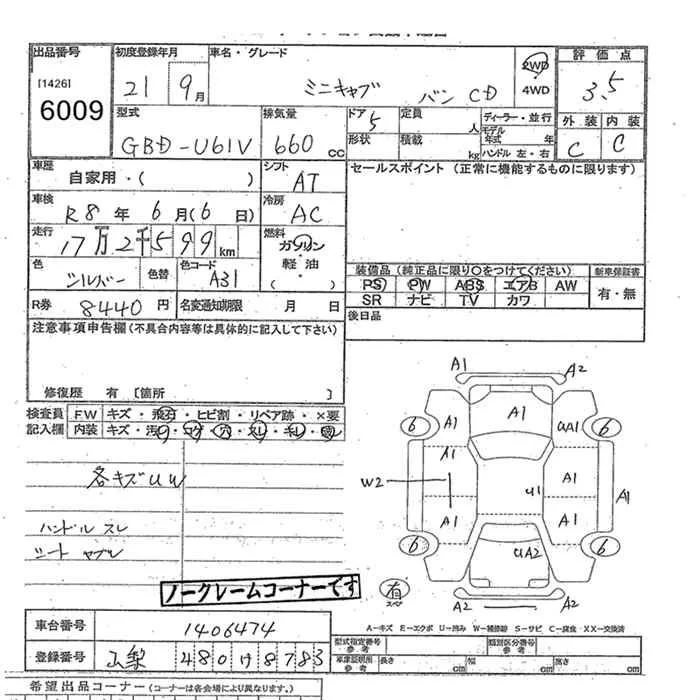 出品番号 初度登録年月 車名・グレード 評価点
[1426] 21 9月 ミニキャブ バン CD 2WD 3.5
6009 4WD
型式 排気量 ドア 定員 ディーラー・並行 外装 内装
GBD-U61V 660cc 5 人 モデル年式 年
形状 積載 kg ハンドル 左・右 C C
車歴 シフト セールスポイント (正常に機能するものに限ります)
自家用・( ) AT
車検 冷房
R8年 6月(6日) AC
走行 燃料
17万2千599km ガソリン
色 色替 色コード 軽油
シルバー A31 ・( )
装備品 (純正品に限り○をつけてください) 新車保証書
PS PW ABS エアB AW 有・無
SR ナビ TV カワ
R券 8440円 名変通知期限 月 日
後日品
注意事項申告欄(不具合内容等は具体的に記入して下さい)
修復歴 有 [箇所 ]
検査員 F.W キズ・飛石・ヒビ割・リペア跡・×要
記入欄 内装 キズ・汚・コゲ・穴・スレ・キレ・
各キズUW
ハンドル スレ
シート ヤブレ
ノークレームコーナーです
A1 A2
6 A1 A1 UA1 6
A1
W2 U1 A1 A1
A1 A1
6 UA2 6
有 スペア
A2 A2
A-キズ E-エクボ U-凹み W-補修跡 S-サビ C-腐食 XX-交換済
車台番号 1406474
登録番号 山梨 480け8783
型式指定番号 参考 類別区分番号 参考
車庫証明用 参考 長さ cm 幅 cm 高さ cm
希望出品コーナー(コーナーは各会場により異なります。)